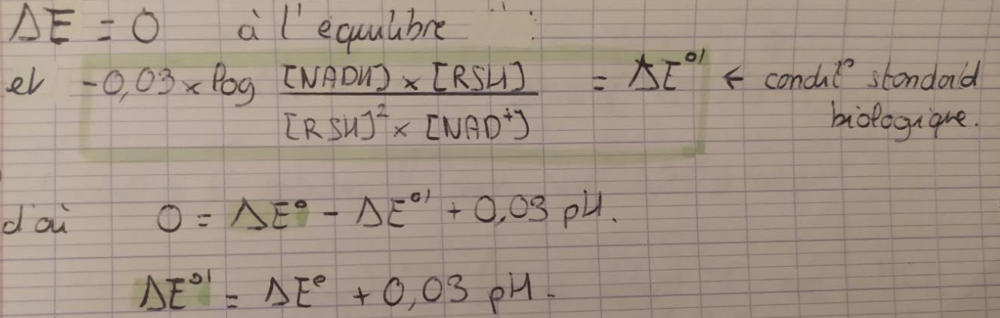 ΔE = 0 à l'équilibre :
et -0,03 × log [NADH] × [RSH] / [RSH]² × [NAD⁺] = ΔE°' ← condit° standard
biologique.
d'où 0 = ΔE° - ΔE°' + 0,03 pH.
ΔE°' = ΔE° + 0,03 pH.